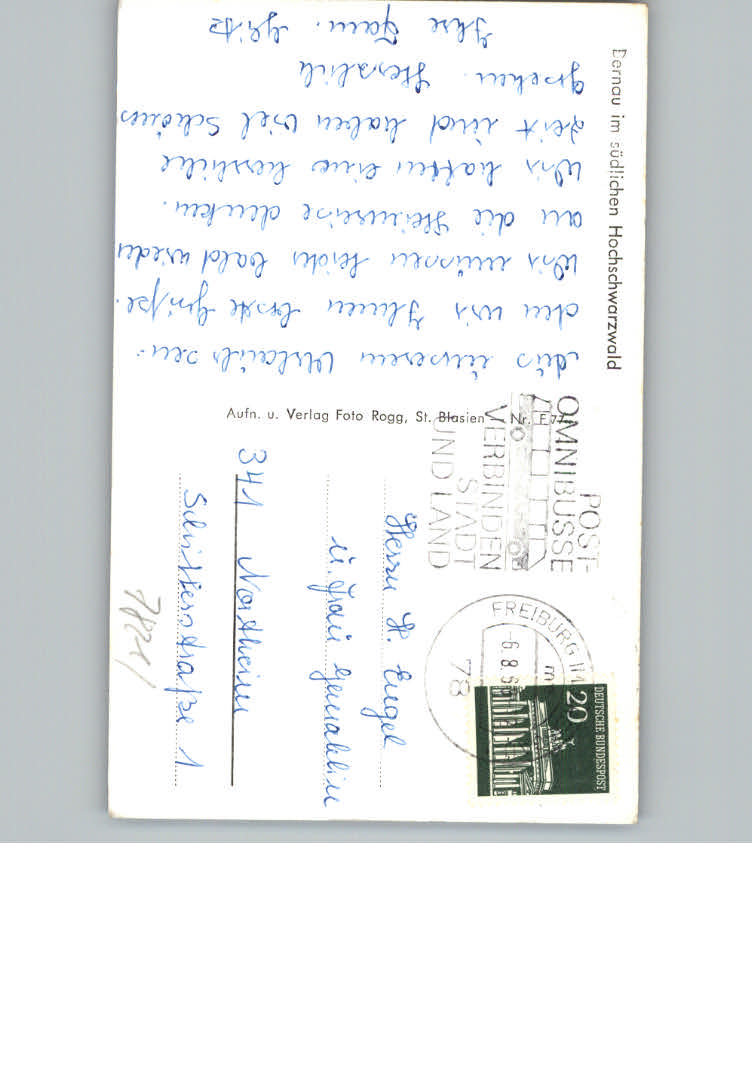 Bernau im südlichen Hochschwarzwald
Aus unserem Urlaub sen-
den wir Ihnen beste Grüße.
Wir müssen leider bald wieder
an die Heimreise denken.
Wir hatten eine herrliche
Zeit und haben viel Schönes
gesehen. Herzlich
Ihre Fam.
Aufn. u. Verlag Foto Rogg, St. Blasien Nr. F 77
POST-
OMNIBUSSE
VERBINDEN
STADT
UND LAND
FREIBURG
-6.8.6
78
DEUTSCHE BUNDESPOST
20
Herrn H. Engel
u. Frau Gemahlin
341 Northeim
Schillerstraße 1
7821